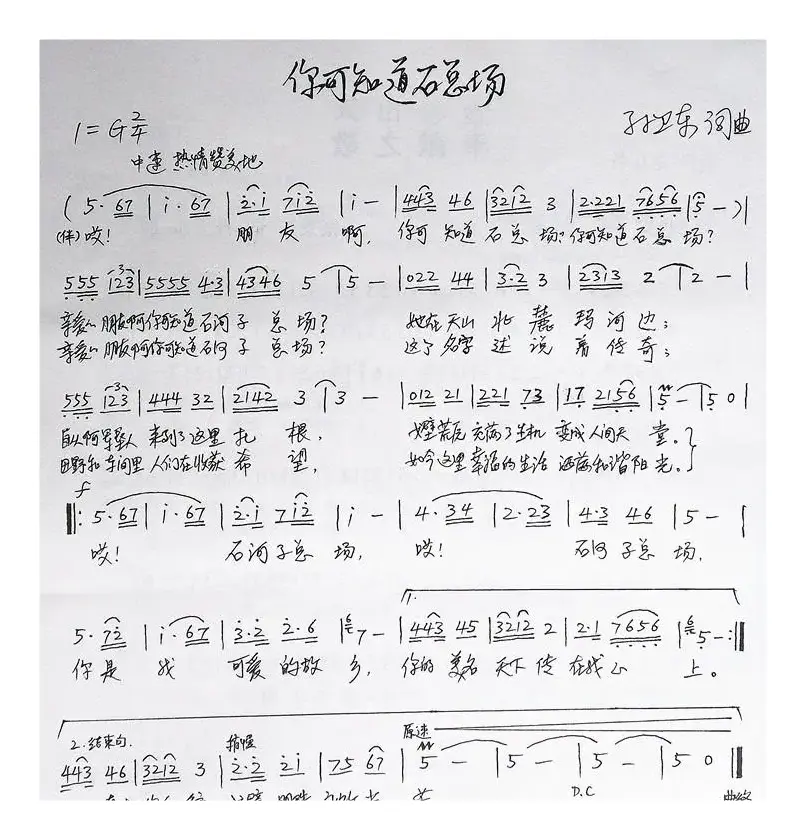 你可知道石总场
1=G 2/4
孙卫东 词曲
中速 热情赞美地
( 5· 67 | i· 67 | 2·i 7i2 | i - | 443 46 | 3212 3 | 2·221 7656 | 5 - ) |
(伴)哎! 朋友啊, 你可知道石总场?你可知道石总场?
555 123 | 5555 4·3 | 4346 5 | 5 - | 022 44 | 3·2 3 | 2313 2 | 2 - |
亲爱的朋友啊你可知道石河子总场? 她在天山北麓玛河边;
亲爱的朋友啊你可知道石河子总场? 这个名字述说着传奇;
555 123 | 444 32 | 2142 3 | 3 - | 012 21 | 221 73 | 17 2156 | 5 - | 5 0 |
自从啊军垦人来到了这里扎根, 戈壁荒原充满了生机变成人间天堂。
田野和车间里人们在收获希望, 如今这里幸福的生活洒满和谐阳光。
f
5· 67 | i· 67 | 2·i 7i2 | i - | 4· 34 | 2· 23 | 4·3 46 | 5 - |
哎! 石河子总场, 哎! 石河子总场,
1.
5· 72 | i· 67 | 3·2 2·6 | 7 - | 443 45 | 3212 2 | 2·1 7656 | 5 - :|
你是我可爱的故乡, 你的美名天下传在我心上。
2. 结束句. 渐慢 原速
443 46 | 3212 3 | 2·2 2i | 75 67 | 5 - | 5 - | 5 - | 5 0 |
D.C